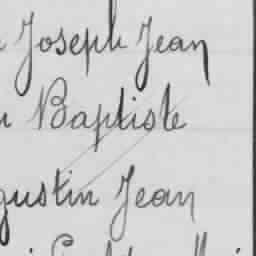 Joseph Jean
Baptiste
gustin Jean